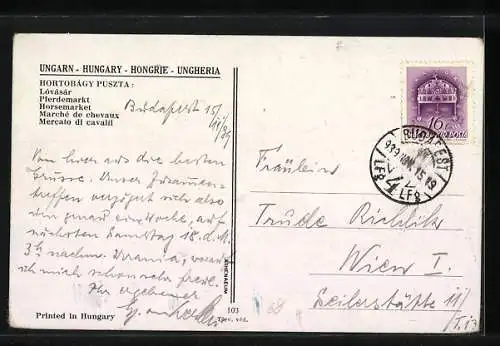 UNGARN - HUNGARY - HONGRIE - UNGHERIA
HORTOBÁGY PUSZTA:
Lóvásár
Pferdemarkt
Horsemarket
Marché de chevaux
Mercato di cavalli
Budapest 15/
Von hier aus die besten
Grüsse. Unser Zusammen-
treffen verzögert sich also
um genau eine Woche, auf
nächsten Samstag 18. d. M.
3h nachm. Urania, worauf
ich mich schon sehr freue.
Ihr ergebener
Printed in Hungary
103
ATHENEUM
16
BUDAPEST
Fräulein
Trude
Wien I.
Seilerstätte 11/